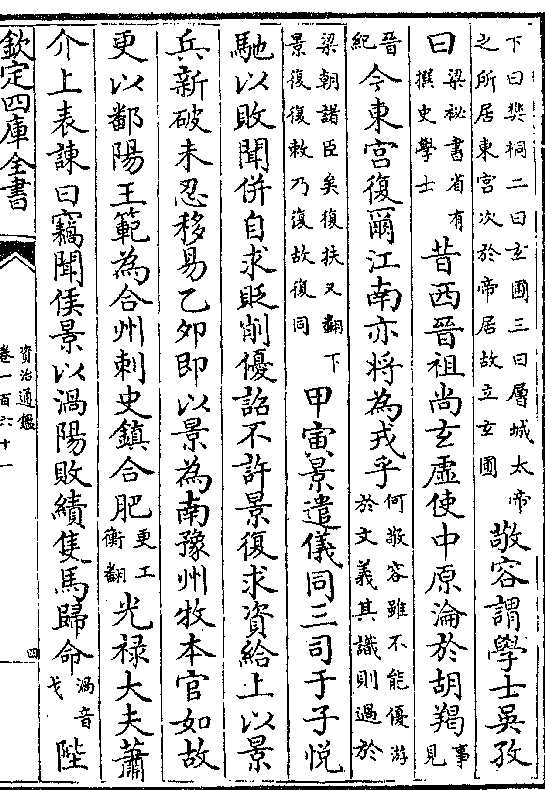 下曰樊桐二曰玄圃三曰層城太帝
之所居東宮次於帝居故立玄圃
敬容謂學士吳孜
曰
梁秘書省有
撰史學士
昔西晉祖尚玄虛使中原淪於胡羯
事
見
晉
紀
今東宮復爾江南亦將為戎乎
何敬容雖不能優游
於文義其識則過於
梁朝諸臣矣復扶又翻下
景復復敕乃復故復同
甲寅景遣儀同三司于子悦
馳以敗聞併自求貶削優詔不許景復求資給上以景
兵新破未忍移易乙夘即以景為南豫州牧本官如故
更以鄱陽王範為合州刺史鎮合肥
更工
衡翻
光禄大夫蕭
介上表諫曰竊聞侯景以渦陽敗績隻馬歸命
渦音
戈
陛
欽定四庫全書
資治通鑑
卷一百六十一
四